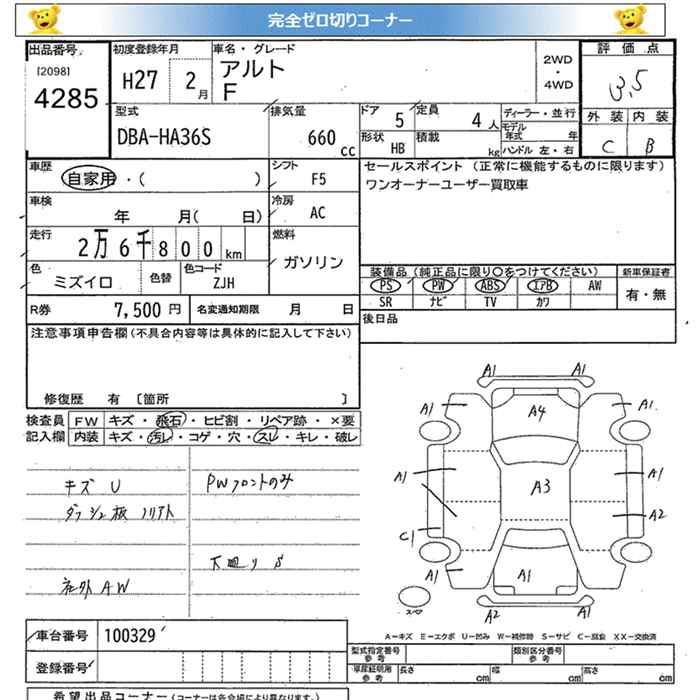 完全ゼロ切りコーナー
出品番号 初度登録年月 車名・グレード 評価点
[2098] 4285 H27 2月 アルト F 2WD・4WD 3.5
型式 排気量 ドア 5 定員 4人 ディーラー・並行 外装 内装
DBA-HA36S 660cc 形状 HB 積載 kg モデル年式 年 C B
ハンドル 左・右
車歴 自家用・( ) シフト F5 セールスポイント (正常に機能するものに限ります)
ワンオーナーユーザー買取車
車検 年 月( 日) 冷房 AC
走行 2万6千800km 燃料 ガソリン
色 ミズイロ 色替 色コード ZJH 装備品(純正品に限り○をつけてください) 新車保証書
PS PW ABS エアB AW 有・無
SR ナビ TV カワ
R券 7,500円 名変通知期限 月 日 後日品
注意事項申告欄(不具合内容等は具体的に記入して下さい)
修復歴 有 [箇所 ]
検査員 FW キズ・飛石・ヒビ割・リペア跡・×要
記入欄 内装 キズ・汚レ・コゲ・穴・スレ・キレ・破レ
キズ U PWフロントのみ
ダッシュ板ノリアト
下廻り S
社外AW
A1
A1 A4 A1
A1 A3 A1
A2
C1
A1 A1 A1
スペア A2 A1
A-キズ E-エクボ U-凹み W-補修跡 S-サビ C-腐食 XX-交換済
車台番号 100329 型式指定番号 参考 類別区分番号 参考
登録番号 車庫証明用 参考 長さ cm 幅 cm 高さ cm
希望出品コーナー(コーナーは各会場により異なります。)